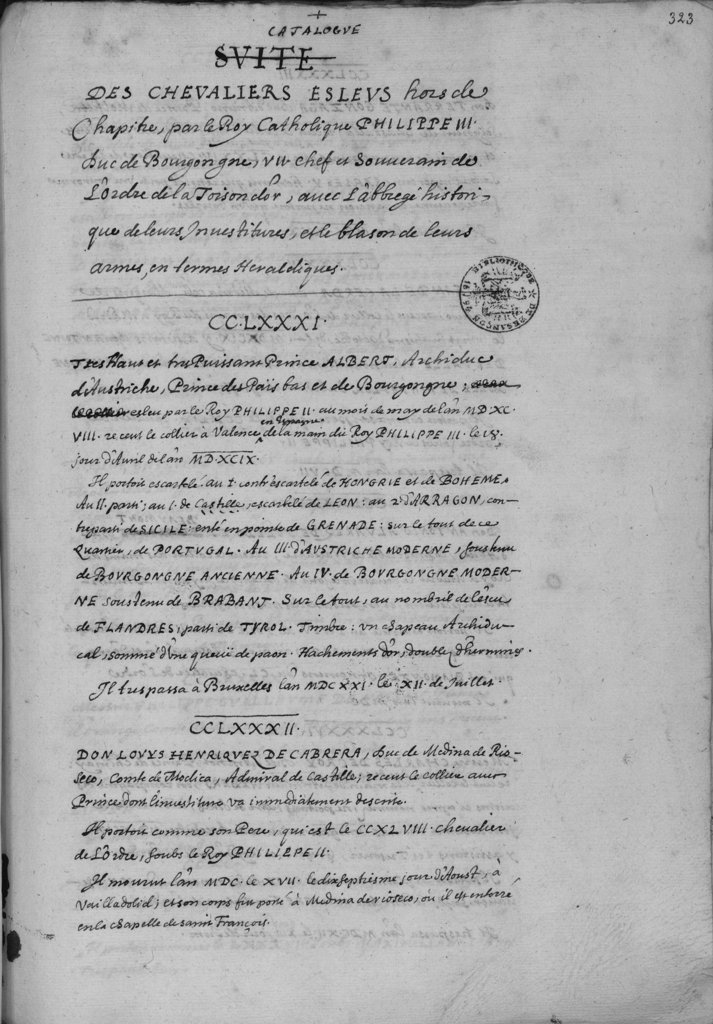 323
CATALOGVE
SVITE
DES CHEVALIERS ESLEVS hors de
Chapitre, par le Roy Catholique PHILIPPE III.
Duc de Bourgongne, VII chef et Souuerain de
L'ôrdre de la Toison d'or, auec L'âbbregé histori-
que de leurs Inuestitures, et le blason de leurs
armes, en termes Heraldiques.
BIBLIOTHEQUE DE BESANÇON
CC.LXXXI.
Tres Haut et tres Puissant Prince ALBERT, Archiduc
d'Austriche, Prince des Païs bas et de Bourgongne,
esleu par le Roy PHILIPPE II. au mois de may de l'an MD.XC.
en Espagne
VIII. receut le collier à Valence de la main du Roy PHILIPPE III. le 18.
jour d'Auril de l'an MD.XCIX.
Il portoit escartelé. au I. contr'escartelé de HONGRIE et de BOHEME.
Au II. parti; au 1. de Castille, escartelé de LEON: au 2. d'ARRAGON, con-
treparti de SICILE: enté en pointe de GRENADE: sur le tout de ce
Quartier, de PORTVGAL. Au III. d'AVSTRICHE MODERNE, soustenu
de BOVRGONGNE ANCIENNE. Au IV. de BOVRGONGNE MODER-
NE soustenu de BRABANT. Sur le tout, au nombril de l'escu
de FLANDRES, parti de TYROL. Timbre: vn chapeau Archidu-
cal, sommé d'une queuë de paon. Hachements d'or, doublez d'hermines.
Il trespassa à Bruxelles l'an MDCXXI. le XII. de Juillet.
CCLXXXII.
DON LOVYS HENRIQVEZ DE CABRERA, Duc de Medina de Rio-
seco, Comte de Modica, Admiral de Castille; receut le collier auec
Prince dont l'inuestiture va immediatement descrite.
Il portoit comme son Pere, qui est le CCXLVIII. chevalier
de L'ôrdre, soubs le Roy PHILIPPE II.
Il mourut l'an MDC. le XVII. le dixseptiesme jour d'Aoust, à
Vailladolid; et son corps fut porté à Medina de rioseco, où il est enterré
en la chapelle de saint François.